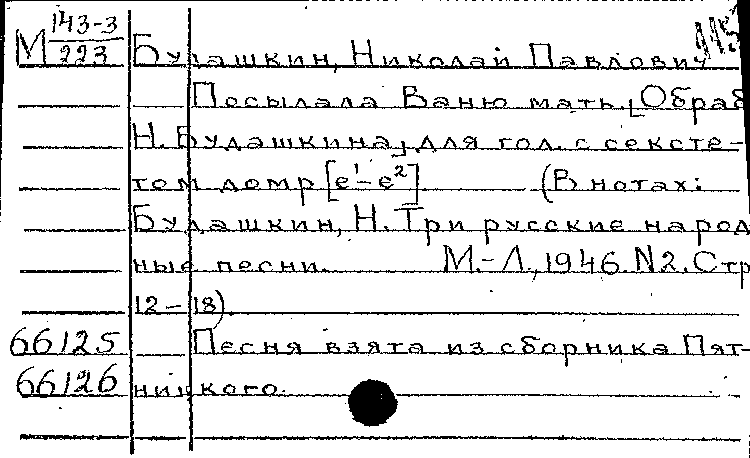 М 143-3/223 Будашкин, Николай Павлович 115
Посылала Ваню мать [Обраб
Н. Будашкина] для гол. с сексте-
том домр [e¹-e²] (В нотах:
Будашкин, Н. Три русские народ
ные песни. М.-Л., 1946. N2. Стр
12-18).
66125 Песня взята из сборника Пят-
66126 ницкого.